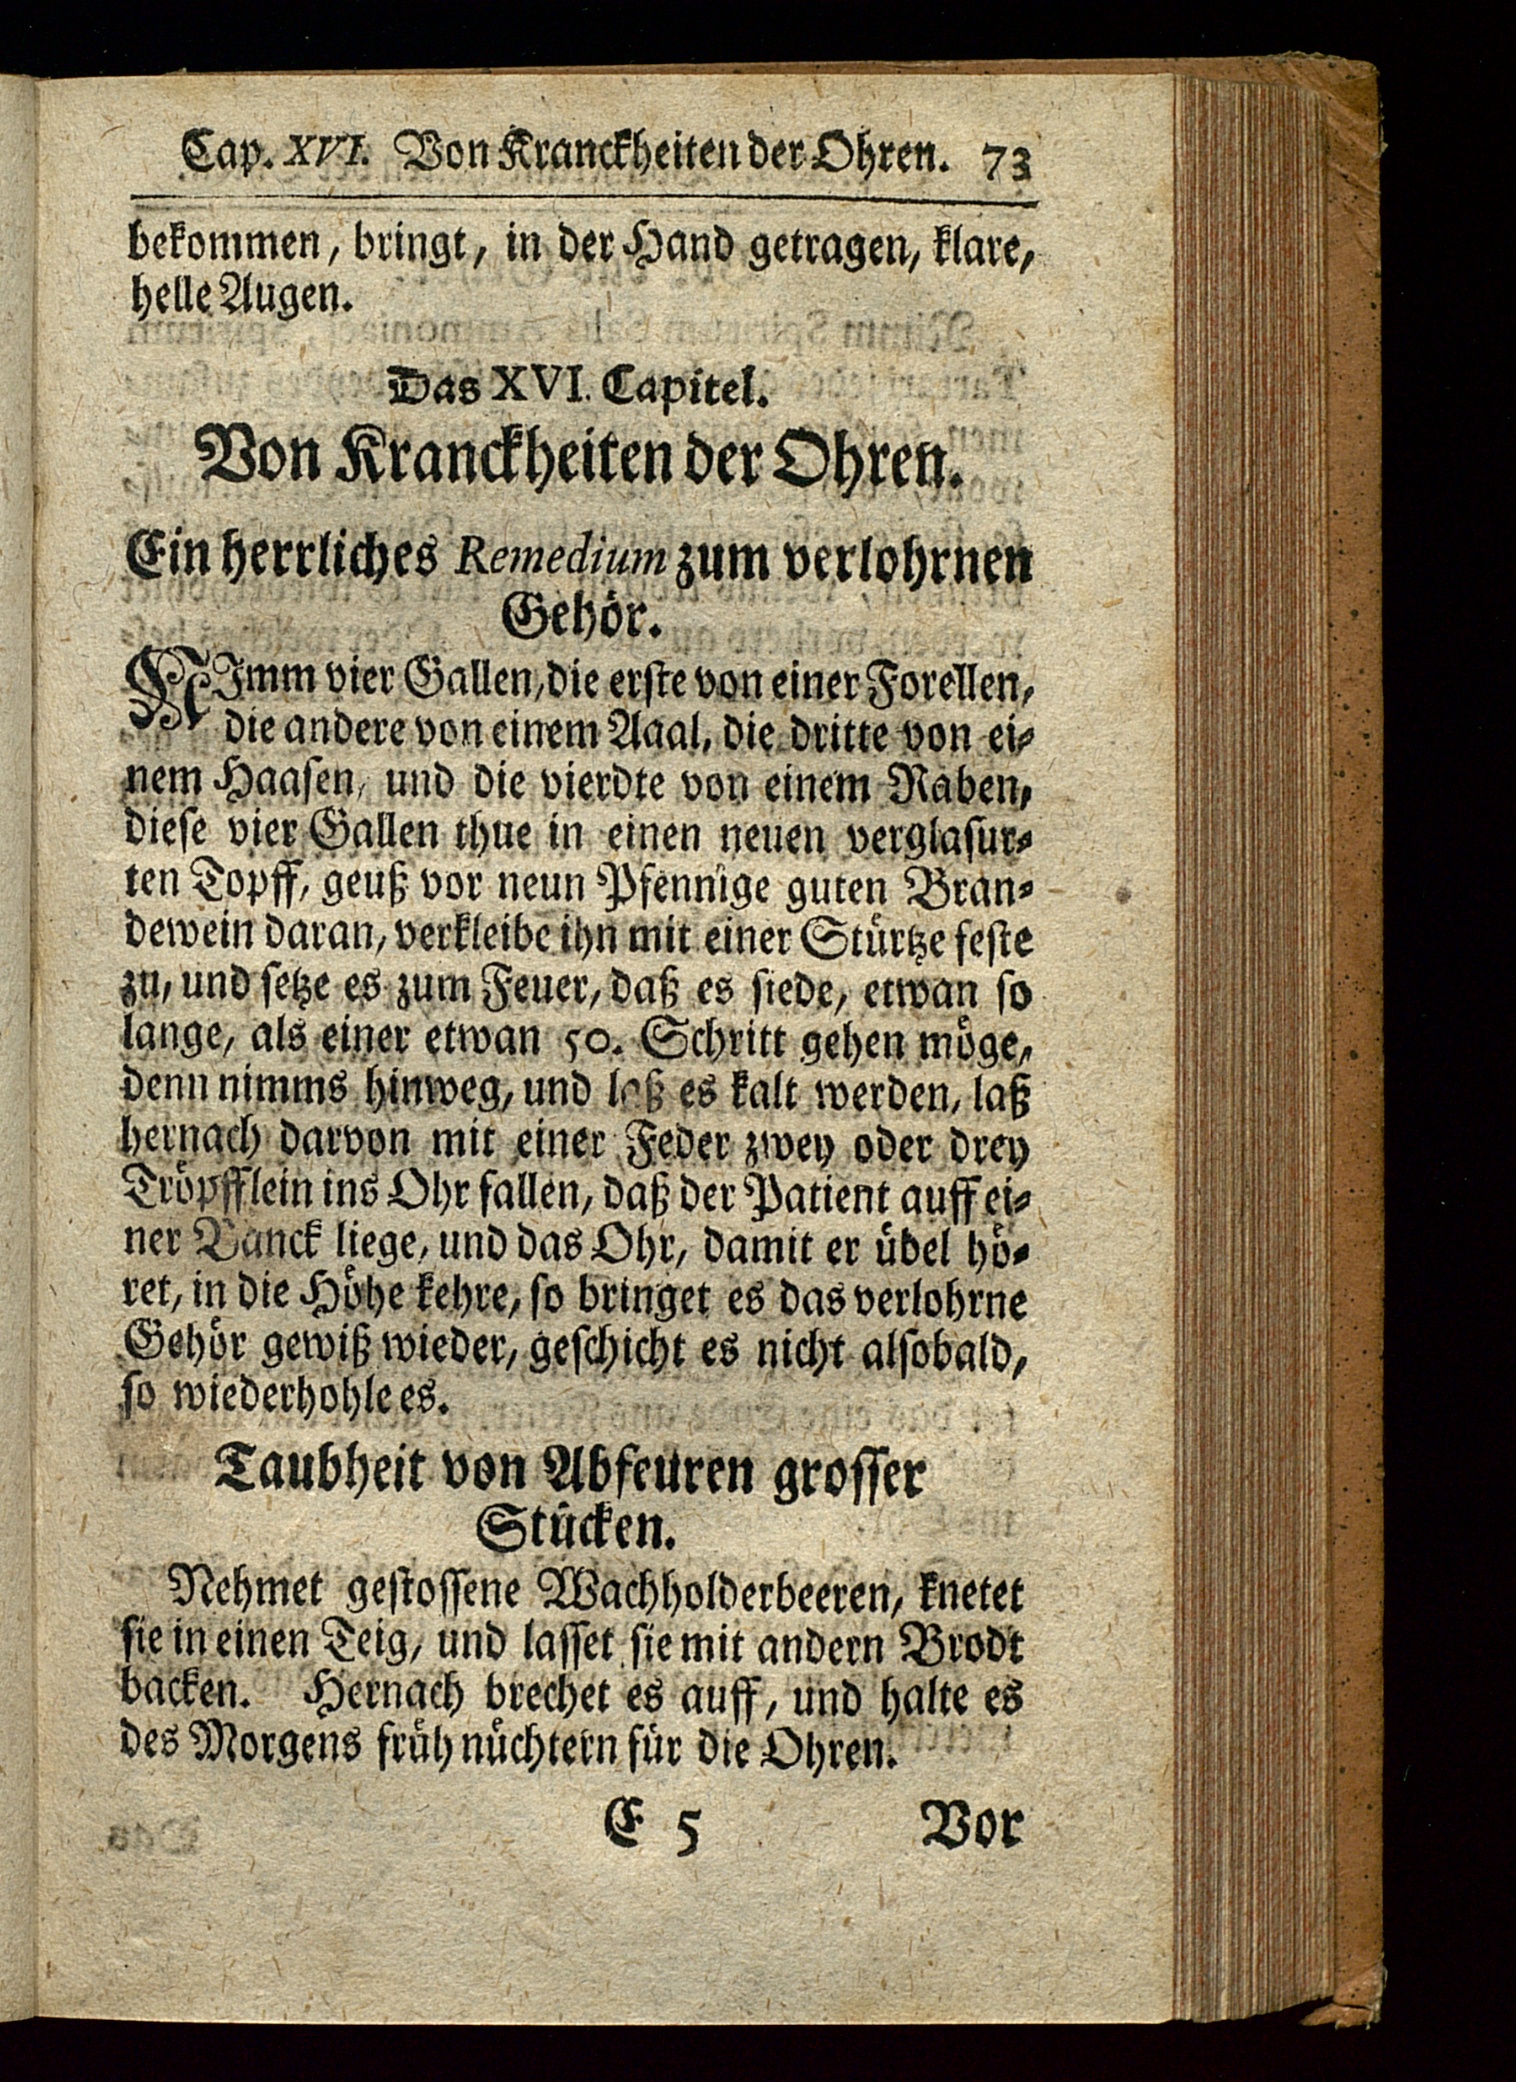 Cap. XVI. Von Kranckheiten der Ohren. 73
bekommen, bringt, in der Hand getragen, klare,
helle Augen.
Das XVI. Capitel.
Von Kranckheiten der Ohren.
Ein herrliches Remedium zum verlohrnen
Gehör.
NImm vier Gallen, die erste von einer Forellen,
die andere von einem Aaal, die dritte von ei-
nem Haasen, und die vierdte von einem Raben,
diese vier Gallen thue in einen neuen verglasur-
ten Topff, geuß vor neun Pfennige guten Bran-
dewein daran, verkleibe ihn mit einer Stürtze feste
zu, und setze es zum Feuer, daß es siede, etwan so
lange, als einer etwan 50. Schritt gehen möge,
denn nimms hinweg, und laß es kalt werden, laß
hernach darvon mit einer Feder zwey oder drey
Tröpfflein ins Ohr fallen, daß der Patient auff ei-
ner Banck liege, und das Ohr, damit er übel hö-
ret, in die Höhe kehre, so bringet es das verlohrne
Gehör gewiß wieder, geschicht es nicht alsobald,
so wiederhohle es.
Taubheit von Abfeuren grosser
Stücken.
Nehmet gestossene Wachholderbeeren, knetet
sie in einen Teig, und lasset sie mit andern Brodt
backen. Hernach brechet es auff, und halte es
des Morgens früh nüchtern für die Ohren.
E 5 Vor